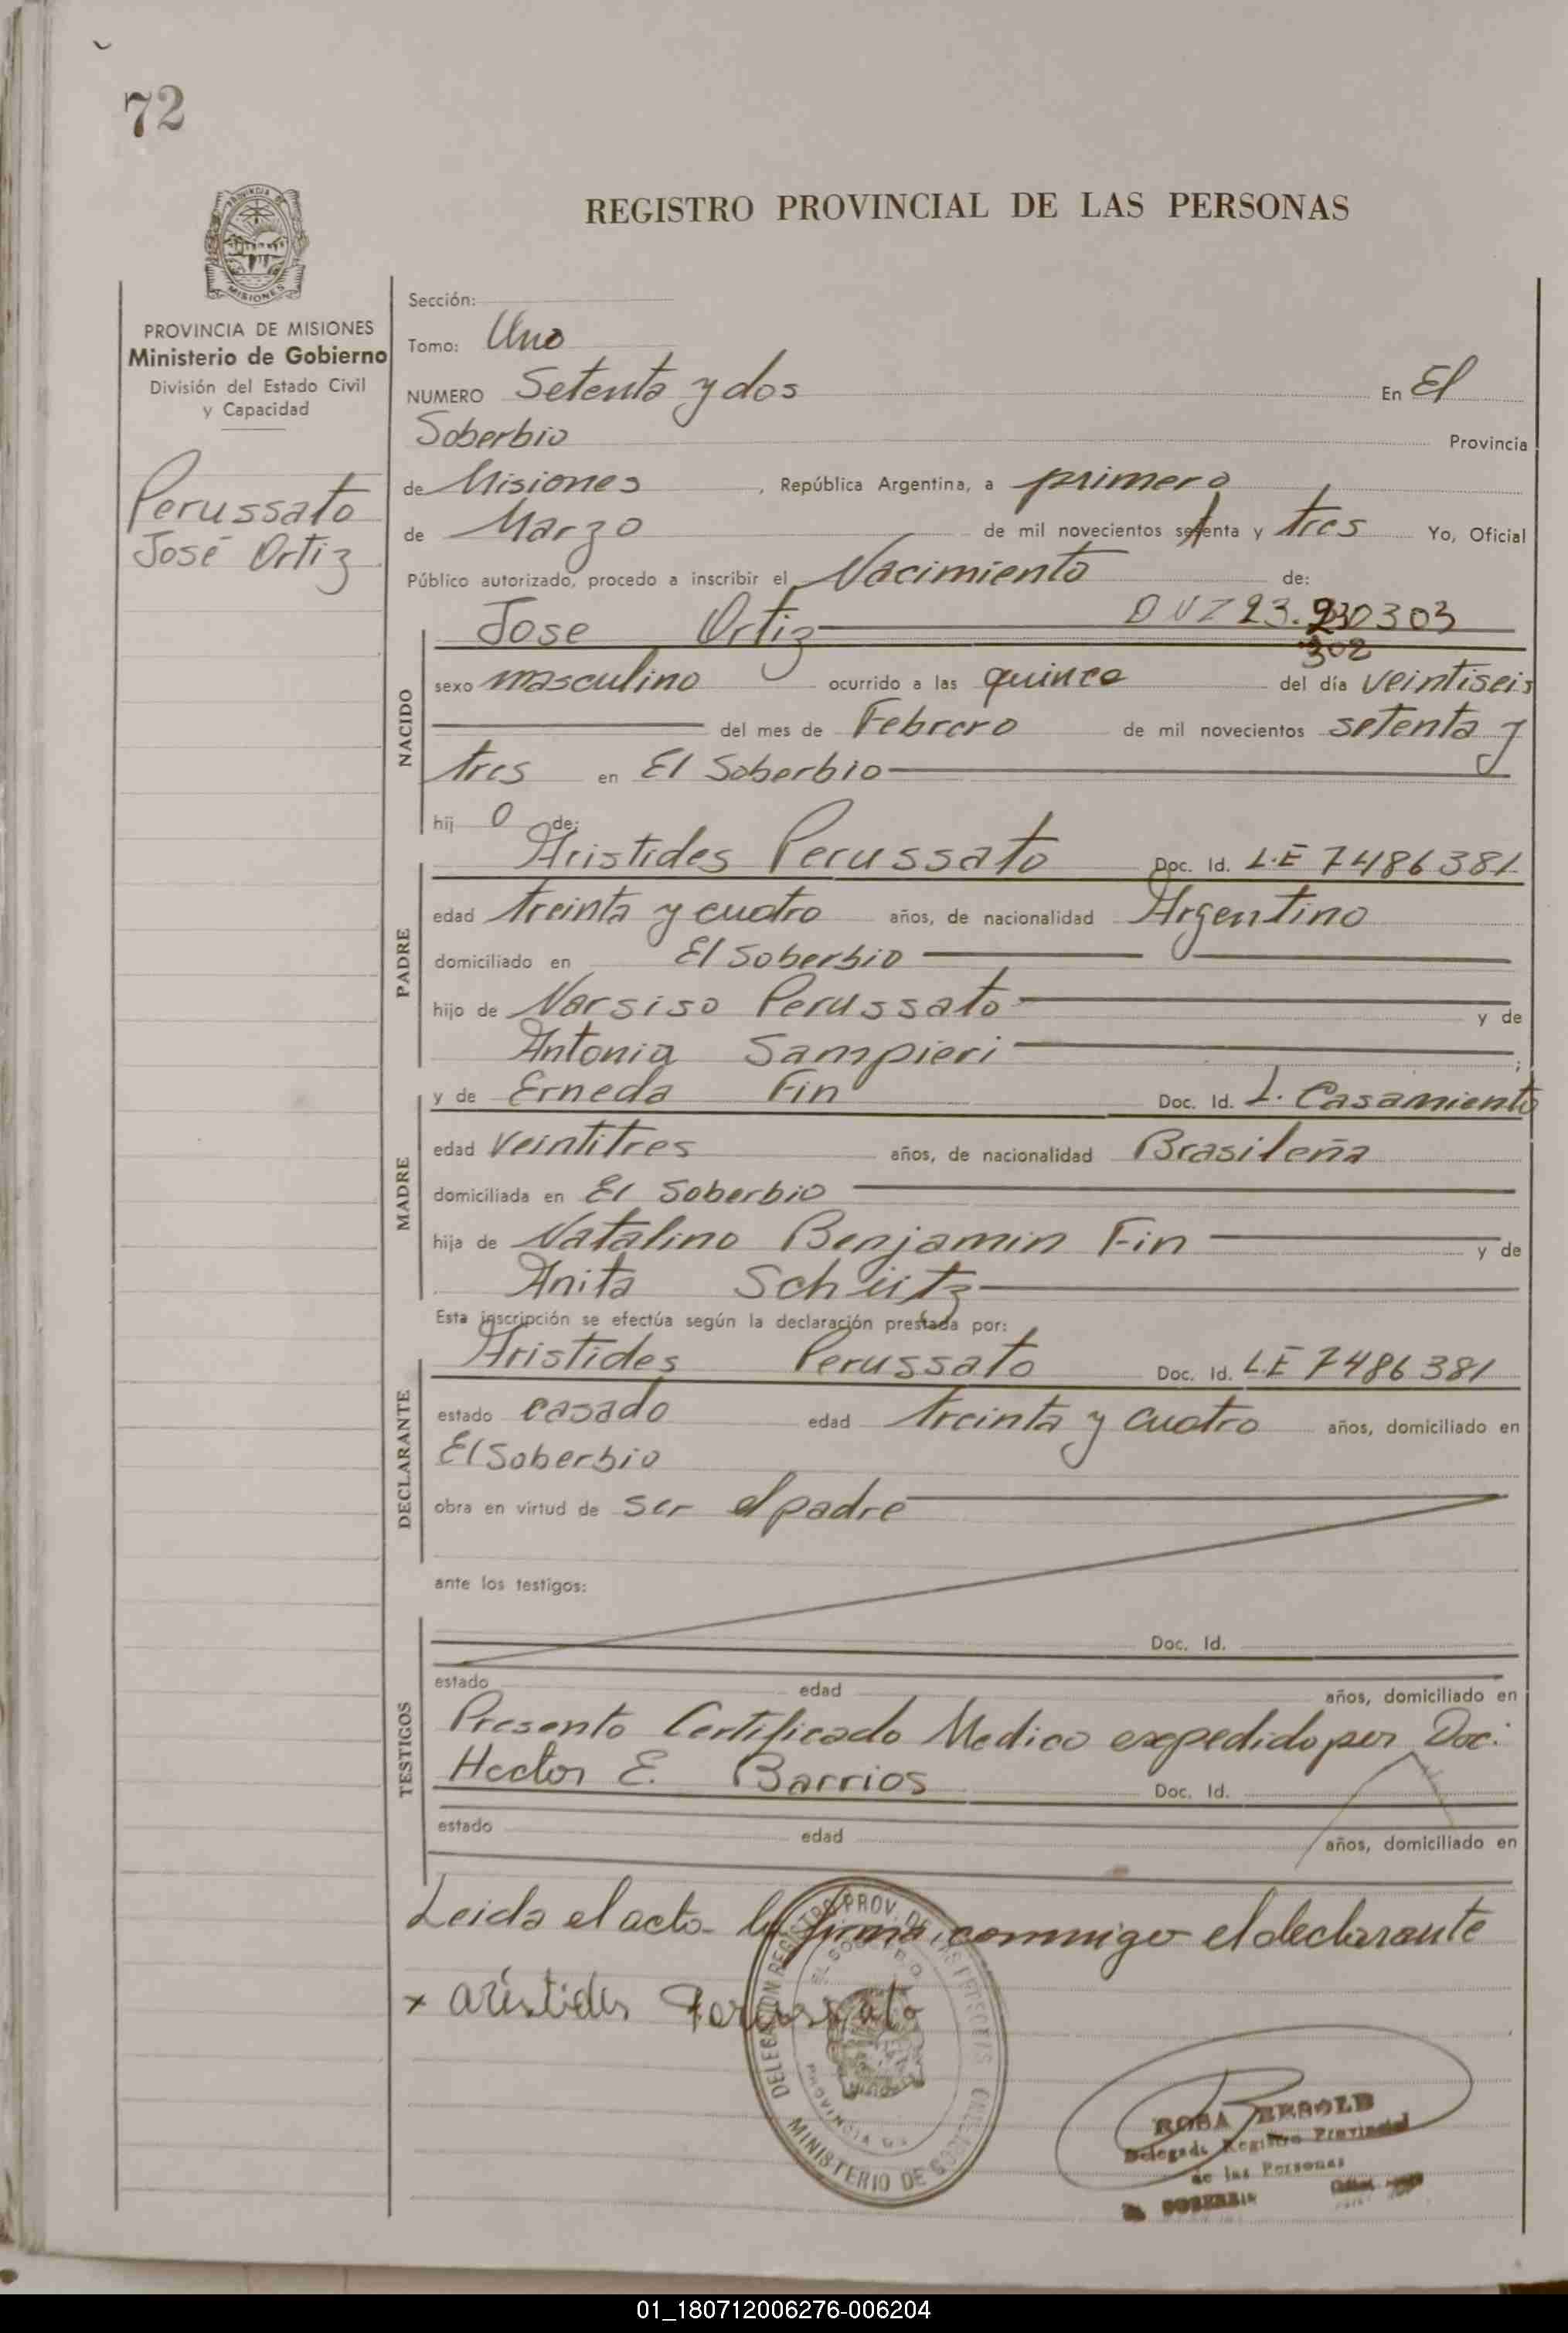 72
PROVINCIA DE
MISIONES
REGISTRO PROVINCIAL DE LAS PERSONAS
PROVINCIA DE MISIONES
Ministerio de Gobierno
División del Estado Civil
y Capacidad
Perussato
José Ortiz
Sección:
Tomo: Uno
NUMERO Setenta y dos En El
Soberbio Provincia
de Misiones, República Argentina, a primero
de Marzo de mil novecientos setenta y tres Yo, Oficial
Público autorizado, procedo a inscribir el Nacimiento de:
Jose Ortiz
302
NACIDO
sexo masculino ocurrido a las quince del día veintiseis
del mes de Febrero de mil novecientos setenta y
tres en El Soberbio
hij o de:
PADRE
Aristides Perussato Doc. Id. L.E 7486381
edad treinta y cuatro años, de nacionalidad Argentino
domiciliado en El Soberbio
hijo de Narsiso Perussato y de
Antonia Sampieri ;
MADRE
y de Erneda Fin Doc. Id. L. Casamiento
edad veintitres años, de nacionalidad Brasileña
domiciliada en El Soberbio
hija de Natalino Benjamin Fin y de
Anita Schütz
Esta inscripción se efectúa según la declaración prestada por:
DECLARANTE
Aristides Perussato Doc. Id. L.E 7486381
estado casado edad treinta y cuatro años, domiciliado en
El Soberbio
obra en virtud de ser el padre
ante los testigos:
TESTIGOS
Doc. Id.
estado edad años, domiciliado en
Presento Certificado Medico expedido por Doc.
Hector E. Barrios Doc. Id.
estado edad años, domiciliado en
Leida el acta la firma, conmigo el declarante
x aristides Perussato
DELEGACION REGISTRO PROV. DE LAS PERSONAS
EL SOBERBIO
PROVINCIA DE
MINISTERIO DE GOBIERNO
ROSA BERGOLD
Delegada Registro Provincial
de las Personas
SOBERBIO
01_180712006276-006204